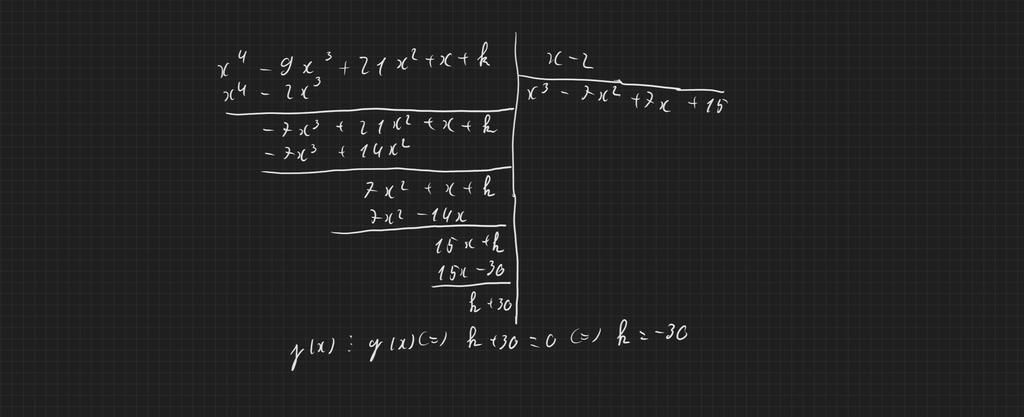 x⁴ - 9x³ + 21x² + x + k
x - 2
x⁴ - 2x³
x³ - 7x² + 7x + 15
-7x³ + 21x² + x + k
-7x³ + 14x²
7x² + x + k
7x² - 14x
15x + k
15x - 30
k + 30
f(x) ⋮ g(x) (=) k + 30 = 0 (=) k = -30